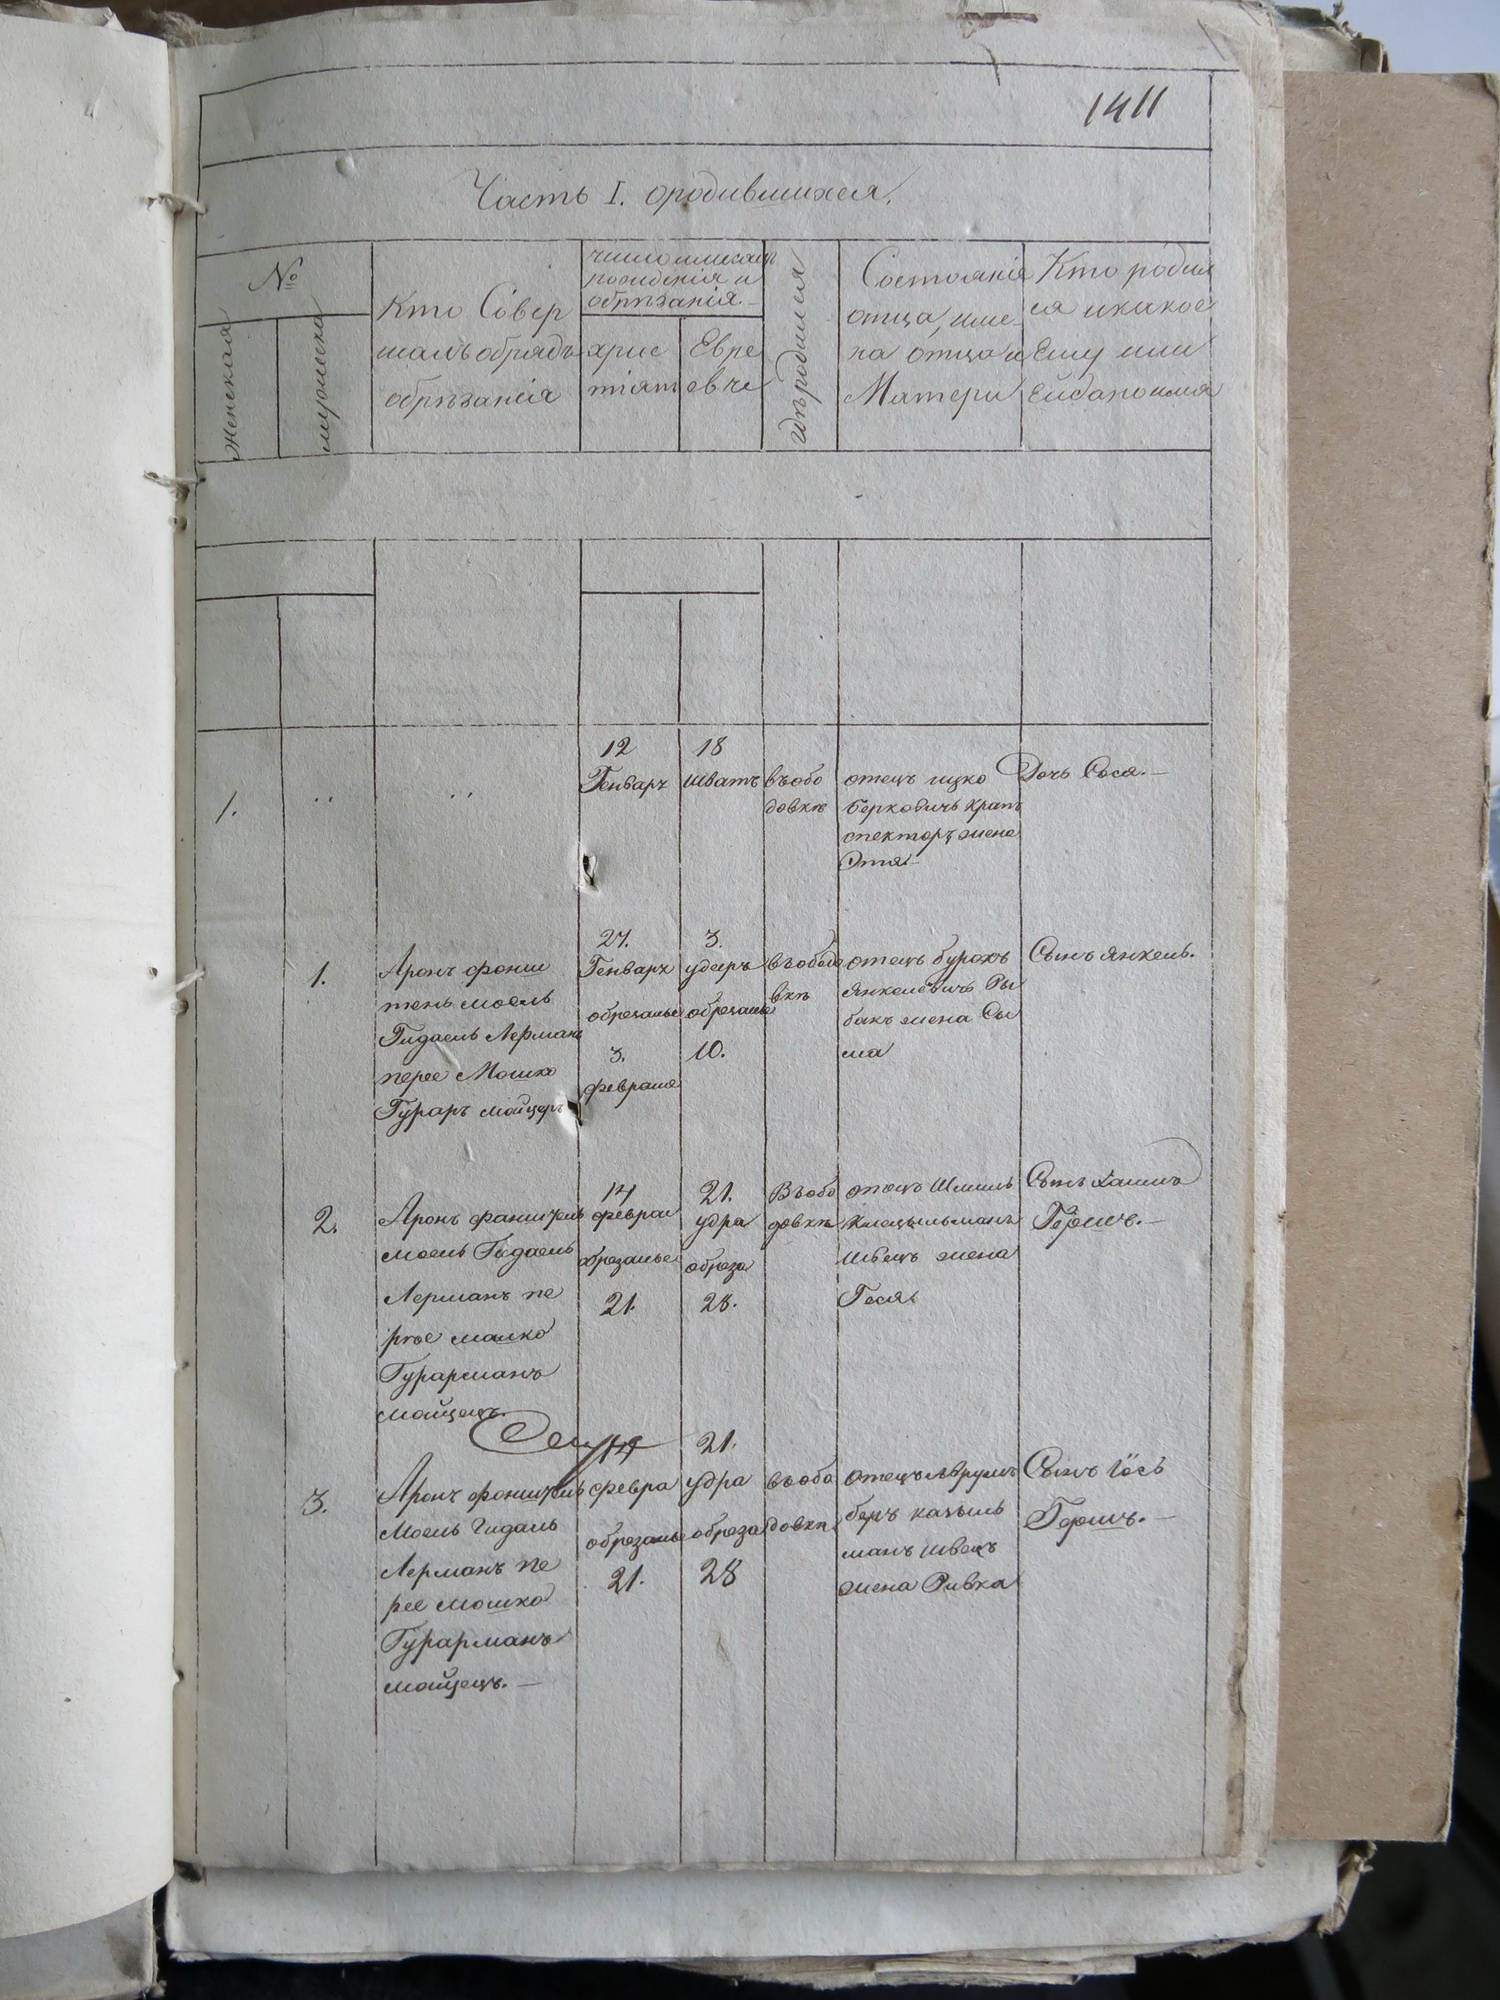 1411
Часть I. ородившихся.
№
Женская
мужеска
Кто Совер
шалъ обрядъ
обрѣзанія
число и месяцъ
рожденія и
обрѣзанія.
хрис
тіян
Евре
евче
гдѣ родился
Состояніе
отца, име
на отца и
Матери
Кто родил
ся и какое
Ему или
Ей дано имя
1.
12
Генваря
18
шватъ
въ обо
довкѣ
отецъ ицко
Берковичъ Крап
спекторъ жена
Этя
Дочь Сося.
1.
Аронъ фони
тень моель
Гидаель Лерман
перее Мошко
Гурарь мойцеръ
27.
Генваря
обрезанье
3.
февраля
3.
удеръ
обрезанье
10.
въ обод
вкѣ
отецъ бурохъ
Янкелевичъ Ры
бакъ жена Сы
ма
Сынъ Янкель.
2.
Аронъ фаништель
моель Гидаель
Лерманъ пе
рее мошко
Гурарманъ
мойцецъ.
14
феврал
обрезанье
21.
21.
удра
обреза
28.
Въ обо
довкѣ
отецъ Шмиль
швецъ жена
Геся
Сынъ Хаимъ
Гершъ.
14
21.
3.
Аронъ фоништель
Моель Гидаль
Лерманъ пе
рее мошко
Гурарманъ
мойцецъ.
февра
обрезанье
21.
удра
обреза
28
въ обо
довкѣ
отецъ Аврумъ
беръ качыль
манъ швецъ
жена Ривка
Сынъ Іось
Гершъ.